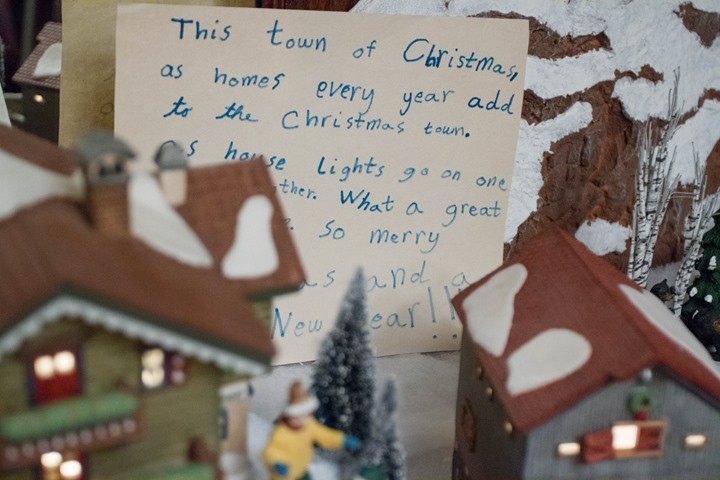 This town of Christmas,
as homes every year add
to the Christmas town.
As house lights go on one
What a great
so merry
and a
New